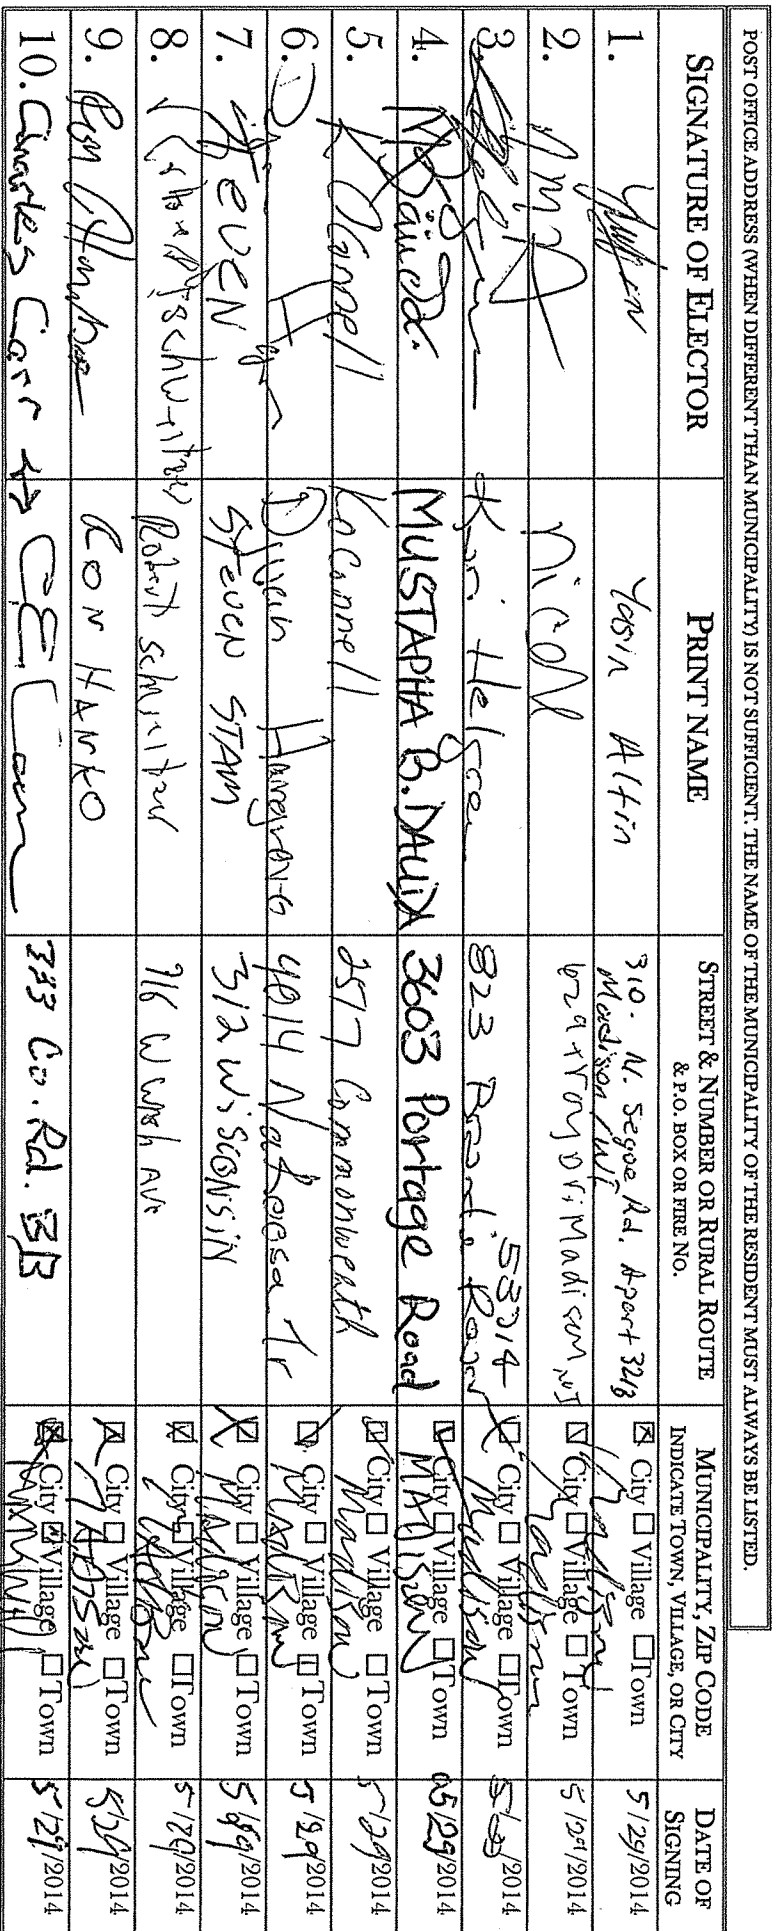 POST OFFICE ADDRESS (WHEN DIFFERENT THAN MUNICIPALITY) IS NOT SUFFICIENT. THE NAME OF THE MUNICIPALITY OF THE RESIDENT MUST ALWAYS BE LISTED.
SIGNATURE OF ELECTOR
PRINT NAME
STREET & NUMBER OR RURAL ROUTE
& P.O. BOX OR FIRE NO.
MUNICIPALITY, ZIP CODE
INDICATE TOWN, VILLAGE, OR CITY
DATE OF
SIGNING
1. Yasin Altin 310. N. Segoe Rd. Apart 321B
Madison / WI
City Village Town Madison 5/29/2014
2. Nicole 629 Troy Dr, Madison, WI City Village Town Madison 5/29/2014
3. 823 53714 City Village Town Madison 5/ /2014
4. MUSTAPHA B. DAUDA 3603 Portage Road City Village Town MADISON 05/29/2014
5. K OConnell KoConnell 2517 Commonweath City Village Town Madison 5/29/2014
6. 4014 Nakoosa Tr City Village Town MADISON 5/29/2014
7. STEVEN STEVEN STAM 312 WISCONSIN City Village Town MADISON 5/29/2014
8. Robert Schweitzer 716 W Wash Ave City Village Town 5/29/2014
9. Ron RON HANKO City Village Town MADISON 5/29/2014
10. Charles Carr 333 Co. Rd. BB City Village Town 5/29/2014